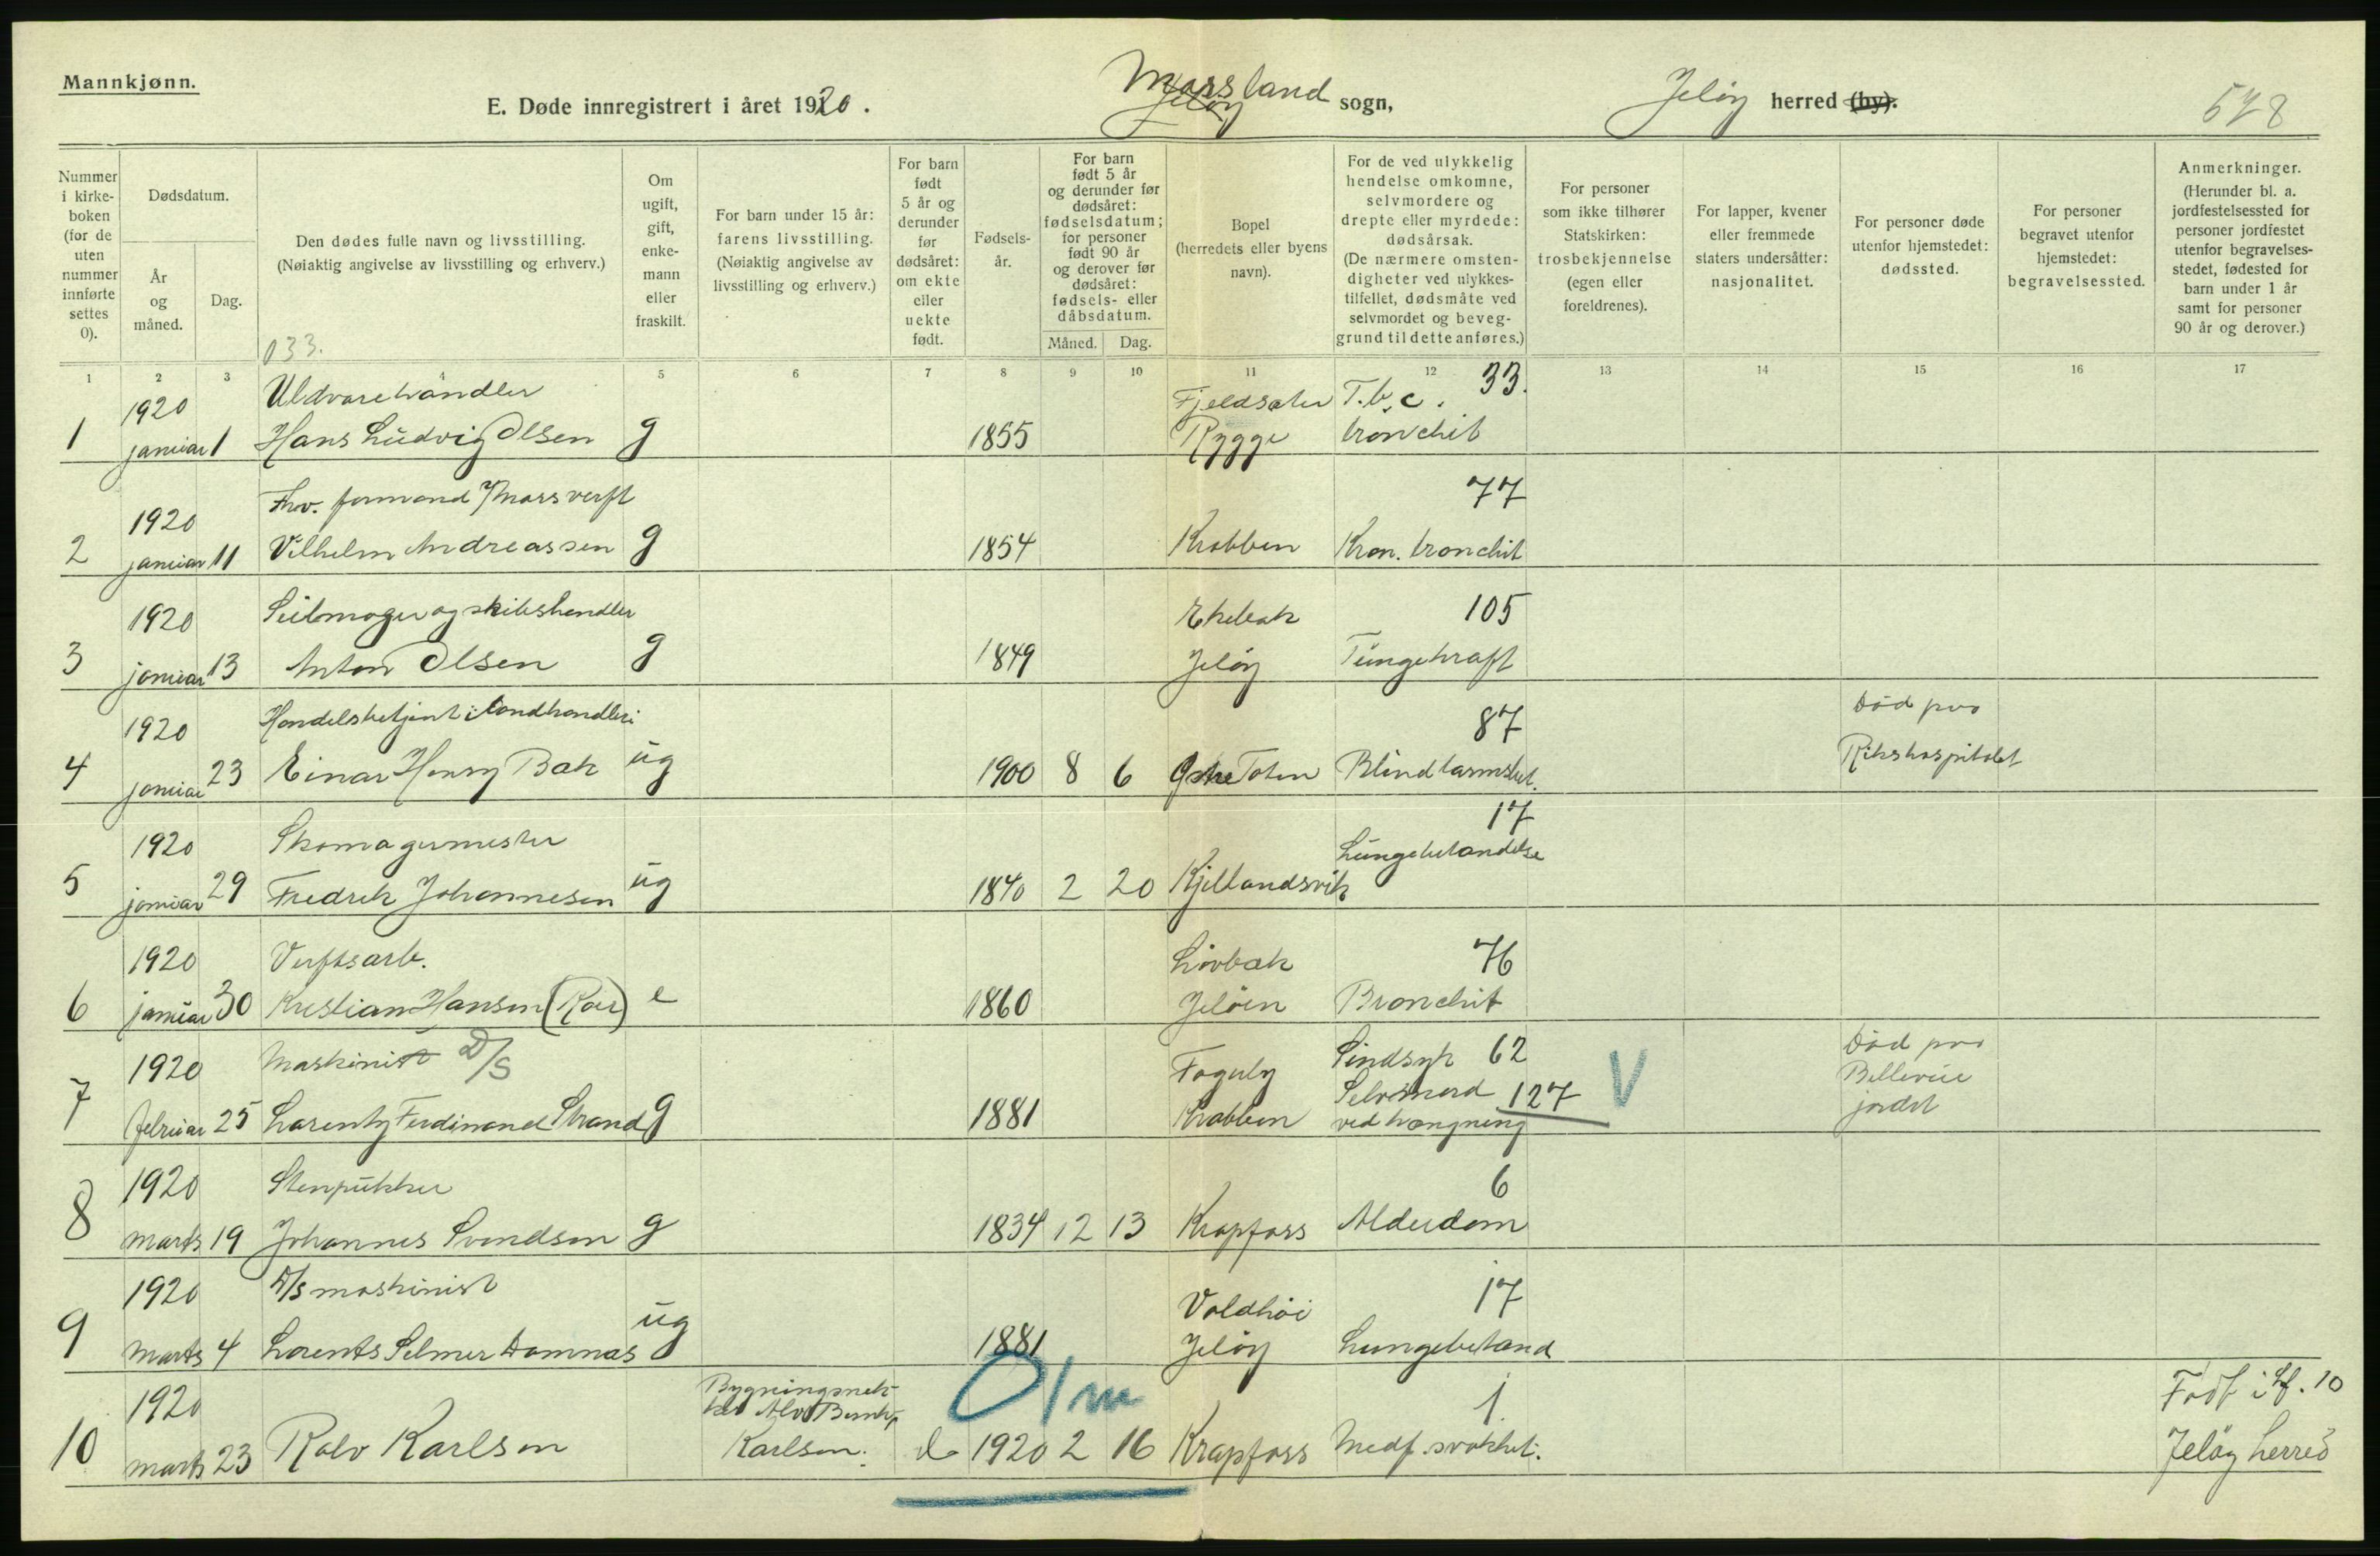 Mannkjønn.
E. Døde innregistrert i året 1920.
Mossland
Jeløy sogn,
Jeløy herred (by).
528
Nummer i kirkeboken (for de uten nummer innførte settes 0).
Dødsdatum.
År og måned.
Dag.
Den dødes fulle navn og livsstilling.
(Nøiaktig angivelse av livsstilling og erhverv.)
033.
Om ugift, gift, enkemann eller fraskilt.
For barn under 15 år: farens livsstilling.
(Nøiaktig angivelse av livsstilling og erhverv.)
For barn født 5 år og derunder før dødsåret: om ekte eller uekte født.
Fødselsår.
For barn født 5 år og derunder før dødsåret: fødselsdatum; for personer født 90 år og derover før dødsåret: fødsels- eller dåbsdatum.
Måned. Dag.
Bopel (herredets eller byens navn).
For de ved ulykkelig hendelse omkomne, selvmordere og drepte eller myrdede: dødsårsak.
(De nærmere omstendigheter ved ulykkestilfellet, dødsmåte ved selvmordet og beveggrund til dette anføres.)
For personer som ikke tilhører Statskirken: trosbekjennelse (egen eller foreldrenes).
For lapper, kvener eller fremmede staters undersåtter: nasjonalitet.
For personer døde utenfor hjemstedet: dødssted.
For personer begravet utenfor hjemstedet: begravelsessted.
Anmerkninger.
(Herunder bl. a. jordfestelsessted for personer jordfestet utenfor begravelsesstedet, fødested for barn under 1 år samt for personer 90 år og derover.)
1 2 3 4 5 6 7 8 9 10 11 12 13 14 15 16 17
1920 Uldvarehandler Fjeldsæter T.b.c. 33.
1 januar 1 Hans Ludvig Olsen g 1855 Rygge bronchit
Fhv. formand Moss verft 77
1920
2 januar 11 Vilhelm Andreassen g 1854 Krabben Kron. bronchit
1920 Seilmager og skibshandler Ekebak 105
3 januar 13 Anton Olsen g 1849 Jeløy Tungekraft
1920 Handelsbetjent i landhandleri 87 Død paa
4 januar 23 Einar Henry Bak ug 1900 8 6 Østre Toten Blindtarmsbet. Rikshospitalet
1920 Skomagermester 17
Lungebetændelse
5 januar 29 Fredrik Johannesen ug 1840 2 20 Kjellandsvik
1920 Verftsarb. Løvbak 76
6 januar 30 Kristian Hansen (Roer) e 1860 Jeløen Bronchit
1920 Maskinist D/S Fagerly Sindsyk 62 Død paa
Selvmord 127 V Bellevue
7 februar 25 Larentz Ferdinand Strand g 1881 Krabben ved hængning jordet
1920 Stenpukker 6
8 marts 19 Johannes Svendsen g 1834 12 13 Krapfoss Alderdom
1920 D/S maskinist Voldhøi 17
9 marts 4 Lorents Selmer Damnæs ug 1881 Jeløy Lungebetænd
1920 01m 1. Født i 10
Karlsen.
10 marts 23 Rolv Karlsen 1920 2 16 Krapfoss Medf. svakhet. Jeløy herred